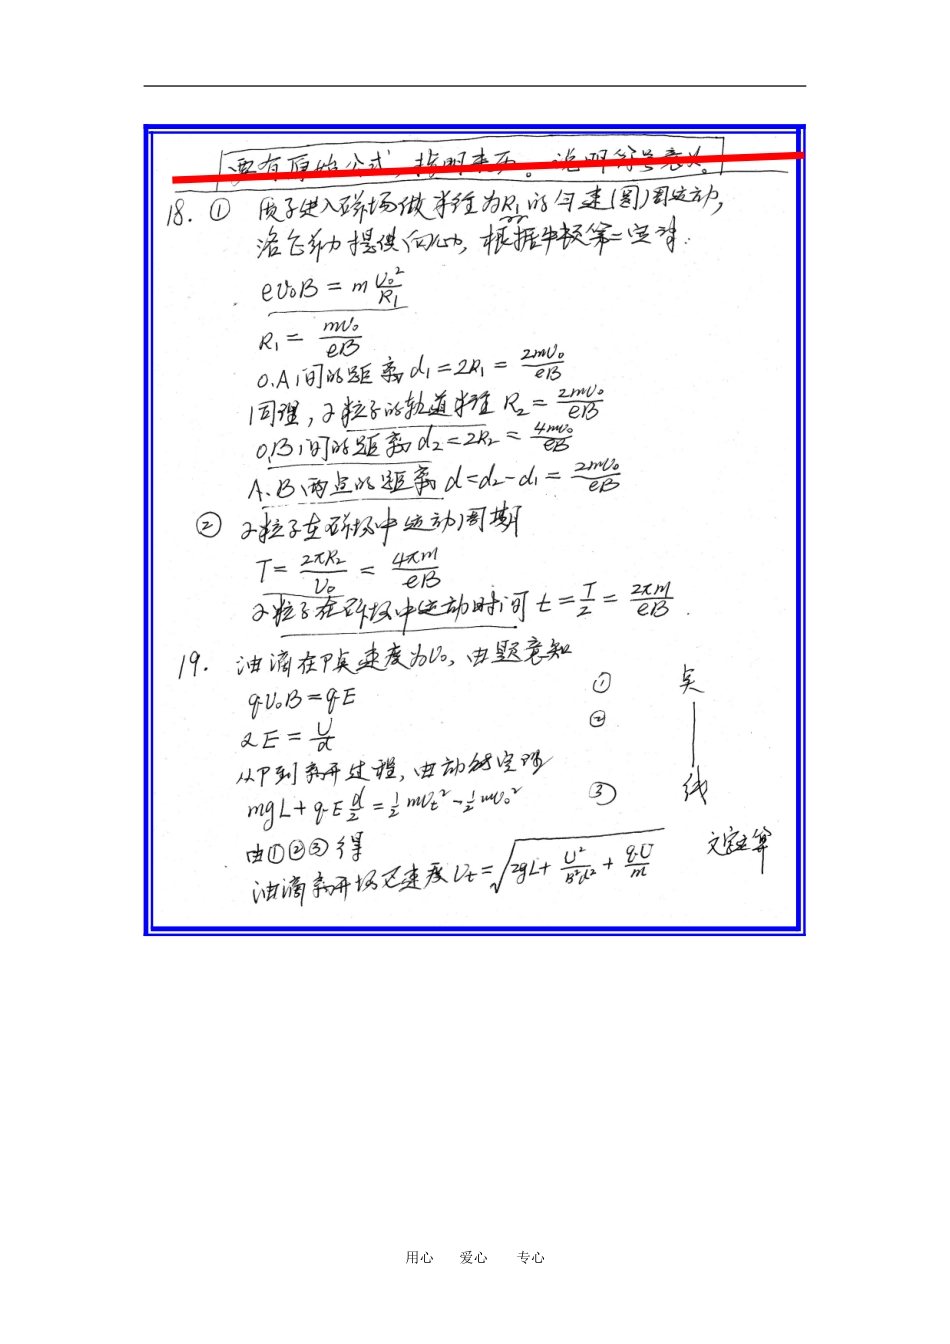 要有原始公式,指明来历。说明符号意义。
18. ① 质子进入磁场做半径为R₁的匀速(圆)周运动,
洛仑兹力提供向心力, 根据牛顿第二定律:
eυ₀B = m υ₀²/R₁
R₁ = mυ₀/eB
O.A间的距离 d₁ = 2R₁ = 2mυ₀/eB
同理, α粒子的轨道半径 R₂ = 2mυ₀/eB
O.B间的距离 d₂ = 2R₂ = 4mυ₀/eB
A、B、两点的距离 d = d₂ - d₁ = 2mυ₀/eB
② α粒子在磁场中运动周期
T = 2πR₂/υ₀ = 4πm/eB
α粒子在磁场中运动时间 t = T/2 = 2πm/eB.
19. 油滴在P点速度为υ₀, 由题意知
qυ₀B = qE ① 关
又E = U/d ②
从P到离开过程, 由动能定理
mgL + qE d/2 = 1/2 mυt² - 1/2 mυ₀² ③ 线
由①②③得
油滴离开场区速度 υt = √(2gL + U²/B²d² + qU/m) 文字运算
用心 爱心 专心